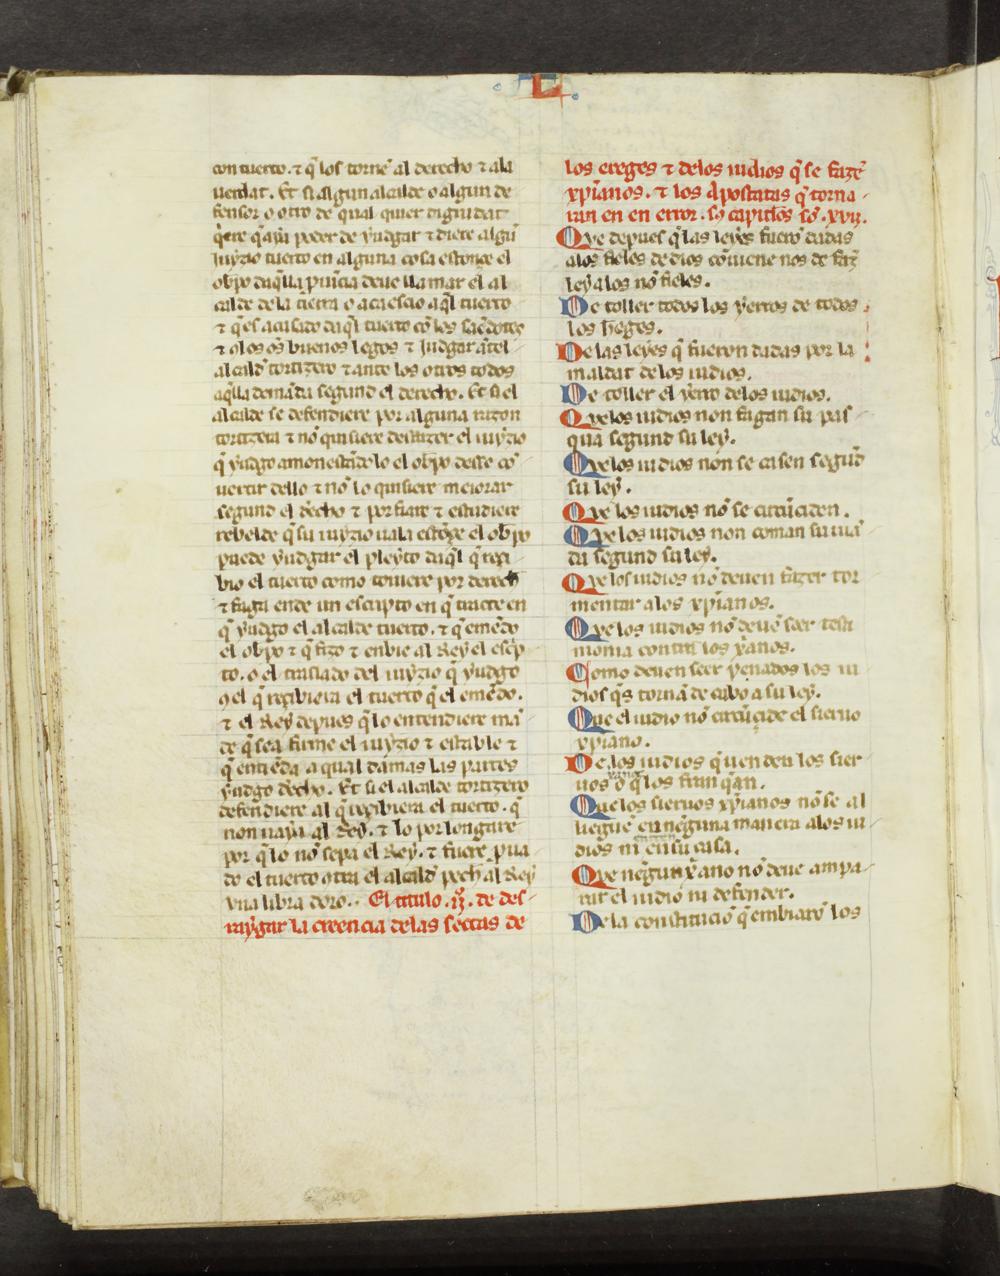 L
con tuerto. ⁊ q̄ los torne al derecho ⁊ ala
uerdat. Et si algun alcalde o algun de
fensor o otro de qual quier dignidat
q̄ere q̄ aya poder de yudgar ⁊ diere algū
iuyzio tuerto en alguna cosa estonçe el
obpo daq̄lla ꝓuīcia deue llamar el al
calde dela tierra o acaescio aq̄l tuerto
⁊ q̄ es acusado daq̄l tuerto cō los saçdotes
⁊ los oȓs buenos legos ⁊ iudgar
alcald tortizero ⁊ ante los otros todos
aq̄lla demāda segund el derecho. Et si el
alcalde se defendiere por alguna razon
tortizera ⁊ nō quisiere desfazer el iuyzio
q̄ yudgo amonestādolo el obpo desse cō
uertir dello ⁊ nō lo quisiere meiorar
segund el decho ⁊ porfiare ⁊ estudiere
rebelde q̄ su iuyzio uala estōçe el obpo
puede yudgar el pleyto daq̄l q̄ reçi
bio el tuerto como touiere por derech
⁊ faga ende un escripto en q̄ tracte en
q̄ yudgo el alcalde tuerto. ⁊ q̄ emēdo
el obpo ⁊ q̄ fizo ⁊ enbie al Rey el esc̄p
to. o el traslado del iuyzio q̄ yudgo
el q̄ reçibiera el tuerto q̄ el emēdo.
⁊ el Rey depues q̄ lo entendiere mā
de q̄ sea firme el iuyzio ⁊ estable ⁊
q̄ entiēda a qual damas las partes
yudgo decho. Et si el alcalde tortizero
defendiere al q̄ reçibiera el tuerto. q̄
non uaya al Rey. ⁊ lo porlongare
por q̄ lo nō sepa el Rey. ⁊ fuere ꝓua
do el tuerto otra el alcald pech al Rey
una libra doro.. El titulo .ij. de des
raygar la creencia delas sectas de
los ereges ⁊ delos iudios q̄ se fazē
xp̄ianos. ⁊ los Apostatas q̄ torna
ran en en error. sō capitlos sō .xvij.
Que depues q̄ las leyes fuerō dadas
alos fieles de dios cōuiene nos de faz̄
ley alos nō fieles.
De toller todos los yerros de todos
los h̄eges.
De las leyes q̄ fueron dadas por la
maldat de los iudios.
De toller el yerro delos iudios.
Que los iudios non fagan su pas
qua segund su ley.
Que los iudios non se casen segūd
su ley.
Que los iudios nō se circūciden.
Que los iudios non coman su uiā
da segund su ley.
Que los iudios nō deuen fazer tor
mentar alos xp̄ianos.
Que los iudios nō deuē seer testi
monia contra los x̄anos.
Como deuen seer penados los iu
dios q̄s tornā de cabo a su ley.
Que el iudio nō circūcide el sieruo
xpiano.
De los iudios q̄ uenden los sier
uos o q̄ los franq̄an.
Que los sieruos xp̄ianos nō se al
leguē en nēguna manera alos iu
dios ni en su casa.
Que nēgun x̄ano nō deue ampa
rar el iudio ni defender.
De la constituciō q̄ embiarō los